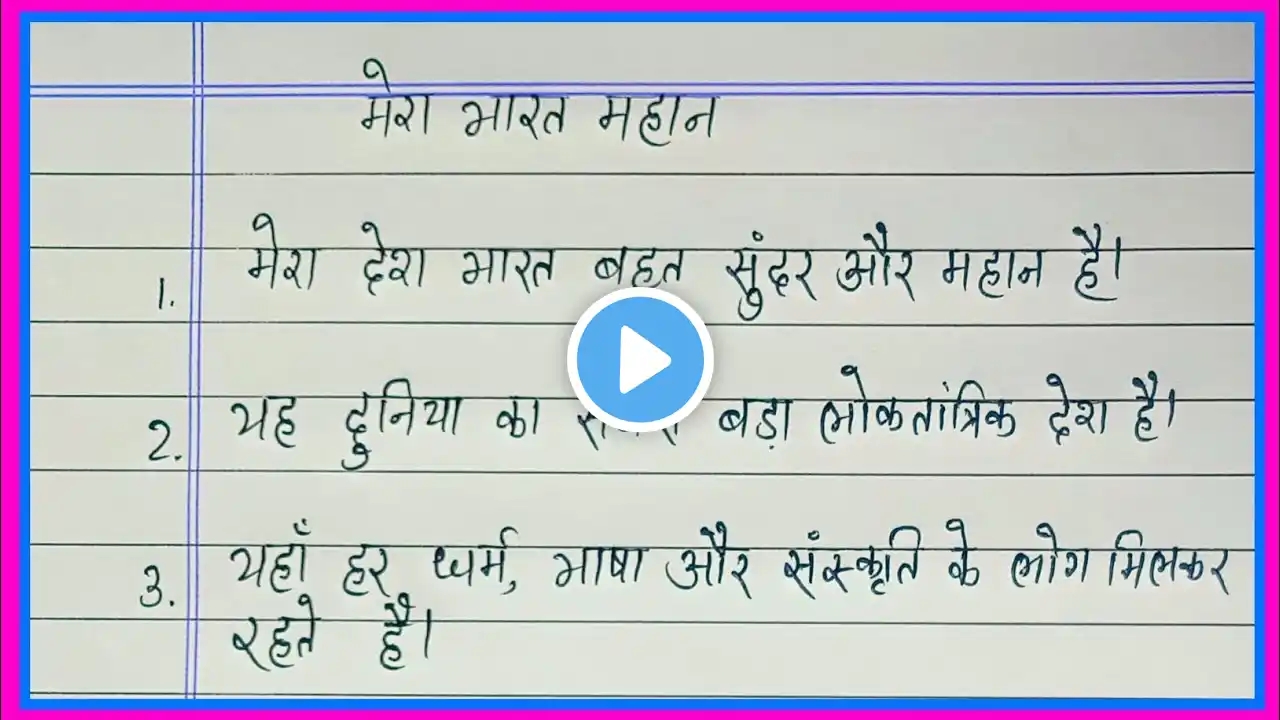 मेरा भारत महान
1. मेरा देश भारत बहुत सुंदर और महान है।
2. यह दुनिया का बड़ा लोकतांत्रिक देश है।
3. यहाँ हर धर्म, भाषा और संस्कृति के लोग मिलकर
रहते है।